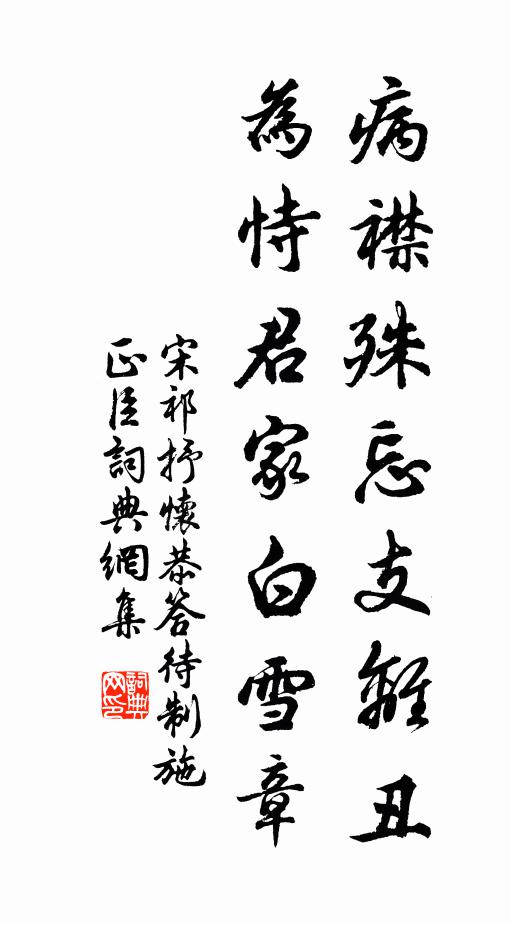 病襟殊忘支離丑
為恃君家白雪章
宋祁抒懷恭答待制施
正臣詞典網集
詞典網印